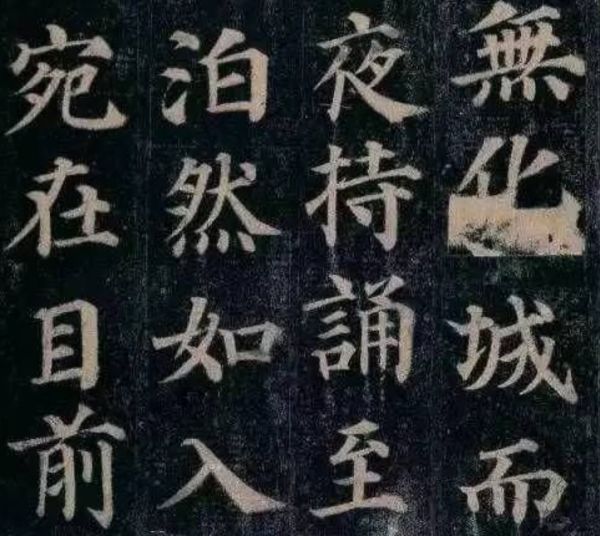 無化城而
夜持誦至
泊然如入
宛在目前